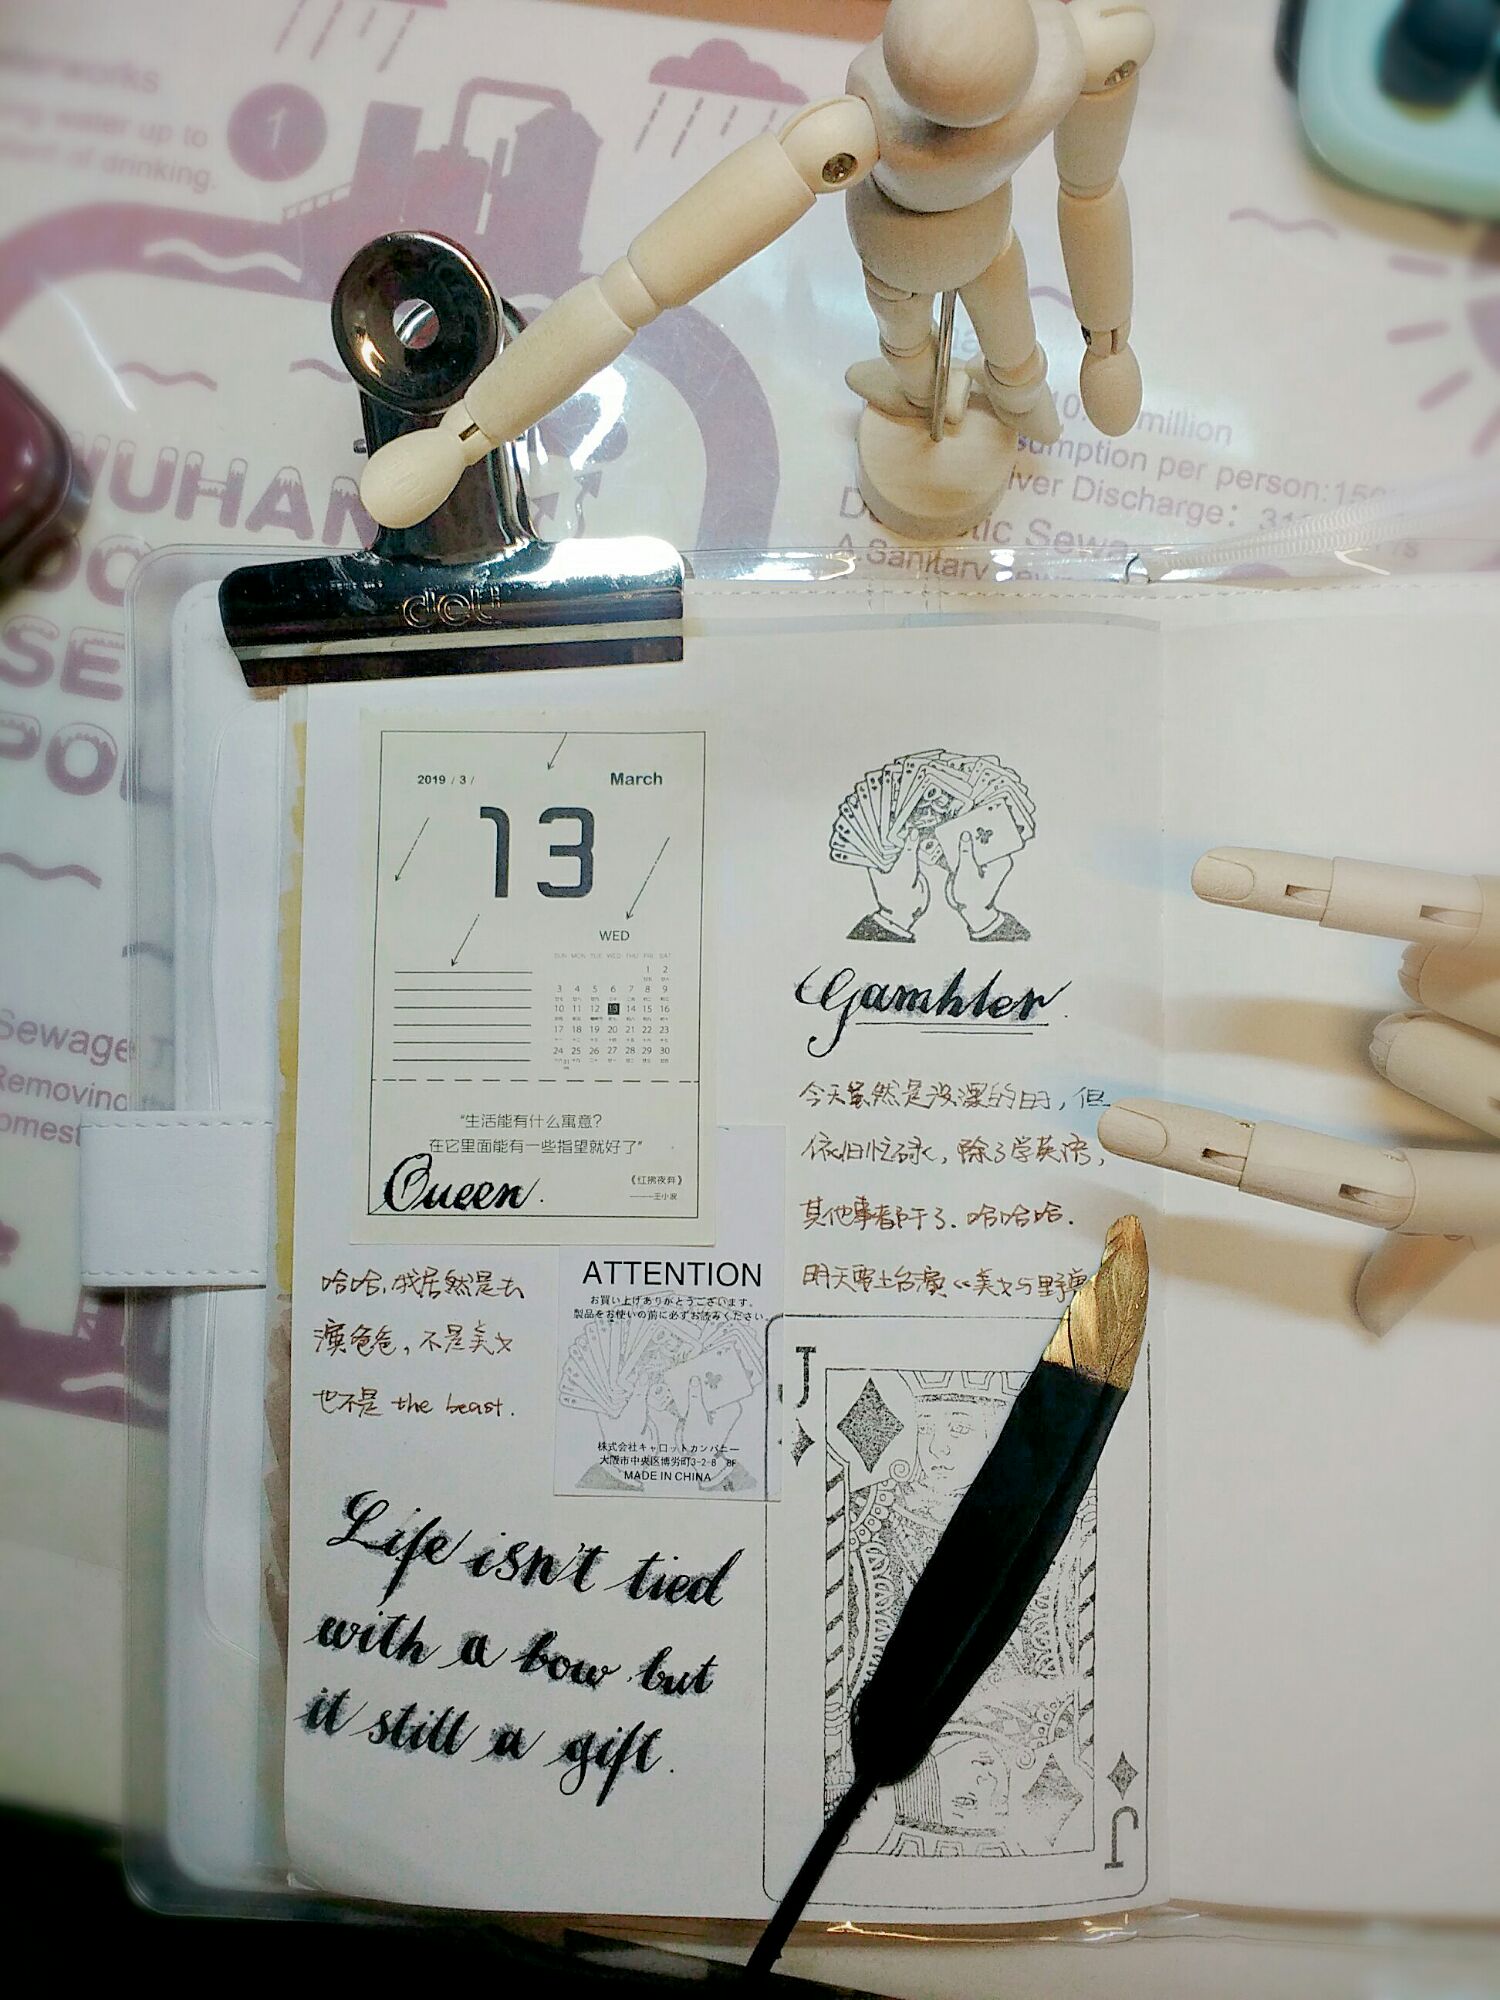 1
ing water up to
of drinking.
WUHAN
million
umption per person:150
iver Discharge:
Sewa
A Sanitary
deli
SE
PO
Sewage T
Removing
omest
2019 / 3 /
March
13
WED
SUN MON TUE WED THU FRI SAT
1 2
3 4 5 6 7 8 9
10 11 12 13 14 15 16
17 18 19 20 21 22 23
24 25 26 27 28 29 30
31
“生活能有什么寓意?
在它里面能有一些指望就好了”
《红拂夜奔》
——王小波
Queen.
哈哈,我居然是去
演爸爸,不是美女
也不是 the beast.
ATTENTION
お買い上げありがとうございます。
製品をお使いの前に必ずお読みください。
株式会社キャロットカンパニー
大阪市中央区博労町3-2-8 8F
MADE IN CHINA
Life isn't tied
with a bow but
it still a gift.
Gambler.
今天虽然是没课的日子,但
依旧忙碌,除了学英语,
其他事都干了.哈哈哈.
明天要上台演《美女与野兽
J
J